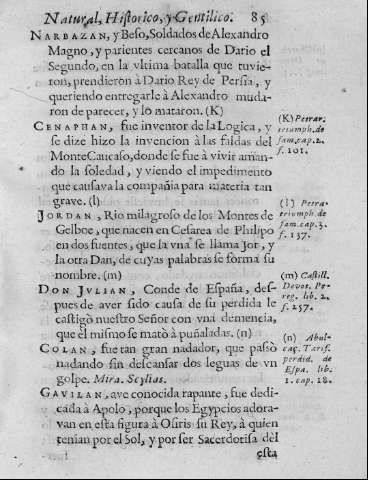 Natural, Historico, y Gentilico. 85
NARBAZAN, y Beso, Soldados de Alexandro
Magno, y parientes cercanos de Dario el
Segundo, en la vltima batalla que tuvie-
ron, prendieron à Dario Rey de Persia, y
queriendo entregarle à Alexandro muda-
ron de parecer, y lo mataron. (K)
CENAPHAN, fue inventor de la Logica, y
se dize hizo la invencion à las faldas del
Monte Caucaso, donde se fue à vivir aman-
do la soledad, y viendo el impedimento
que causava la compañia para materia tan
grave. (l)
JORDAN, Rio milagroso de los Montes de
Gelboe, que nacen en Cesarea de Philipo
en dos fuentes, que la vna se llama Jor, y
la otra Dan, de cuyas palabras se forma su
nombre. (m)
DON JVLIAN, Conde de España, des-
pues de aver sido causa de su perdida le
castigò nuestro Señor con vna demencia,
que èl mismo se matò à puñaladas. (n)
COLAN, fue tan gran nadador, que passò
nadando sin descansar dos leguas de vn
golpe. Mira. Scylias.
GAVILAN, ave conocida rapante, fue dedi-
cada à Apolo, porque los Egypcios adora-
van en esta figura à Osiris su Rey, à quien
tenian por el Sol, y por ser Sacerdotisa del
esta
(K) Petrar.
triumph. de
fam. cap. 2.
f. 101.
(l) Petra-
triumph. de
fam. cap. 3.
f. 137.
(m) Castill.
Devot. Pe-
reg. lib. 2.
f. 257.
(n) Abul-
caç. Tarif.
perdid. de
Espa. lib.
1. cap. 18.